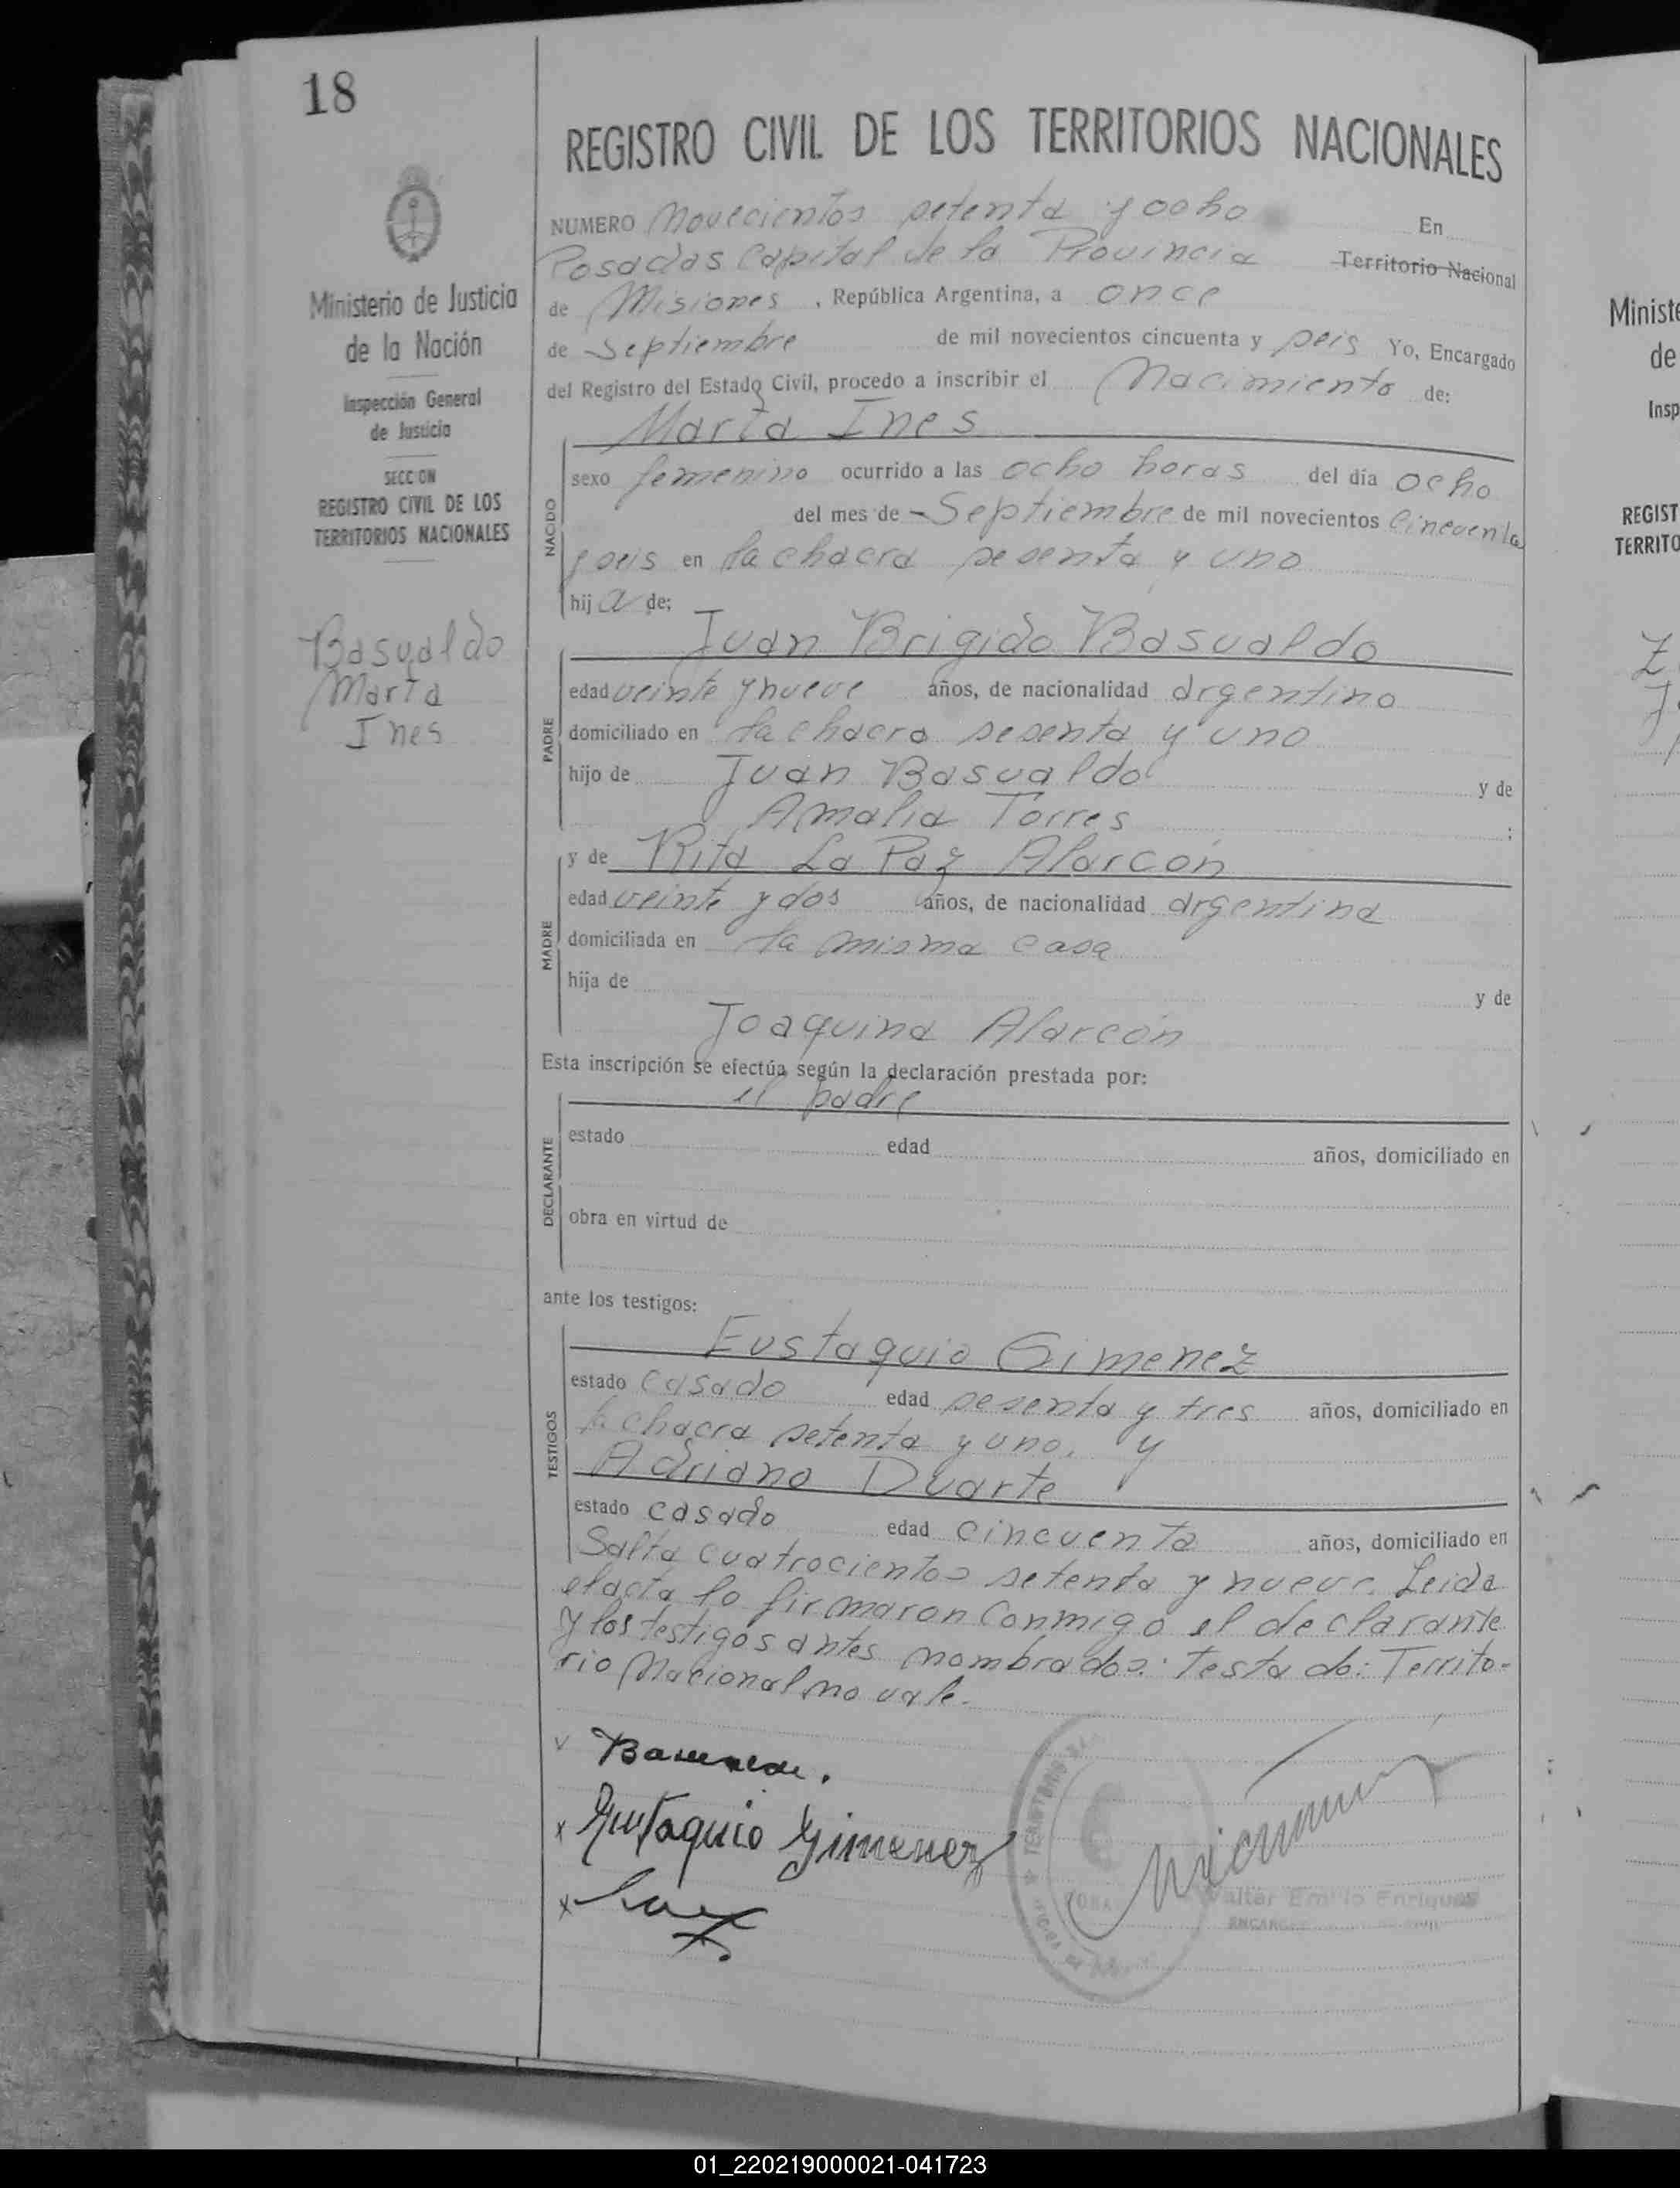 18
REGISTRO CIVIL DE LOS TERRITORIOS NACIONALES
Ministerio de Justicia
de la Nación
Inspección General
de Justicia
SECCION
REGISTRO CIVIL DE LOS
TERRITORIOS NACIONALES
Basualdo
Marta
Ines
NUMERO novecientos setenta y ocho En
Posadas Capital de la Provincia Territorio Nacional
de Misiones, República Argentina, a once
de Septiembre de mil novecientos cincuenta y seis Yo, Encargado
del Registro del Estado Civil, procedo a inscribir el Nacimiento de:
Marta Ines
NACIDO
sexo femenino ocurrido a las ocho horas del día ocho
del mes de Septiembre de mil novecientos Cincuenta
y seis en la chacra sesenta y uno
hija de:
Juan Brigido Basualdo
PADRE
edad veinte y nueve años, de nacionalidad argentino
domiciliado en la chacra sesenta y uno
hijo de Juan Basualdo y de
Amalia Torres :
y de Rita La Paz Alarcón
MADRE
edad veinte y dos años, de nacionalidad argentina
domiciliada en la misma casa
hija de y de
Joaquina Alarcón
Esta inscripción se efectúa según la declaración prestada por:
el padre
DECLARANTE
estado edad años, domiciliado en
obra en virtud de
ante los testigos:
Eustaquio Gimenez
TESTIGOS
estado casado edad sesenta y tres años, domiciliado en
la chacra setenta y uno. y
Adriano Duarte
estado casado edad cincuenta años, domiciliado en
Salta cuatrocientos setenta y nueve. Leida
el acta lo firmaron conmigo el declarante
y los testigos antes nombrados: Testado: Territo-
rio Nacional no vale.
Eustaquio Gimenez
Walter Emilio Enriquez
Ministe
de
Insp
REGIST
TERRITO
01_220219000021-041723